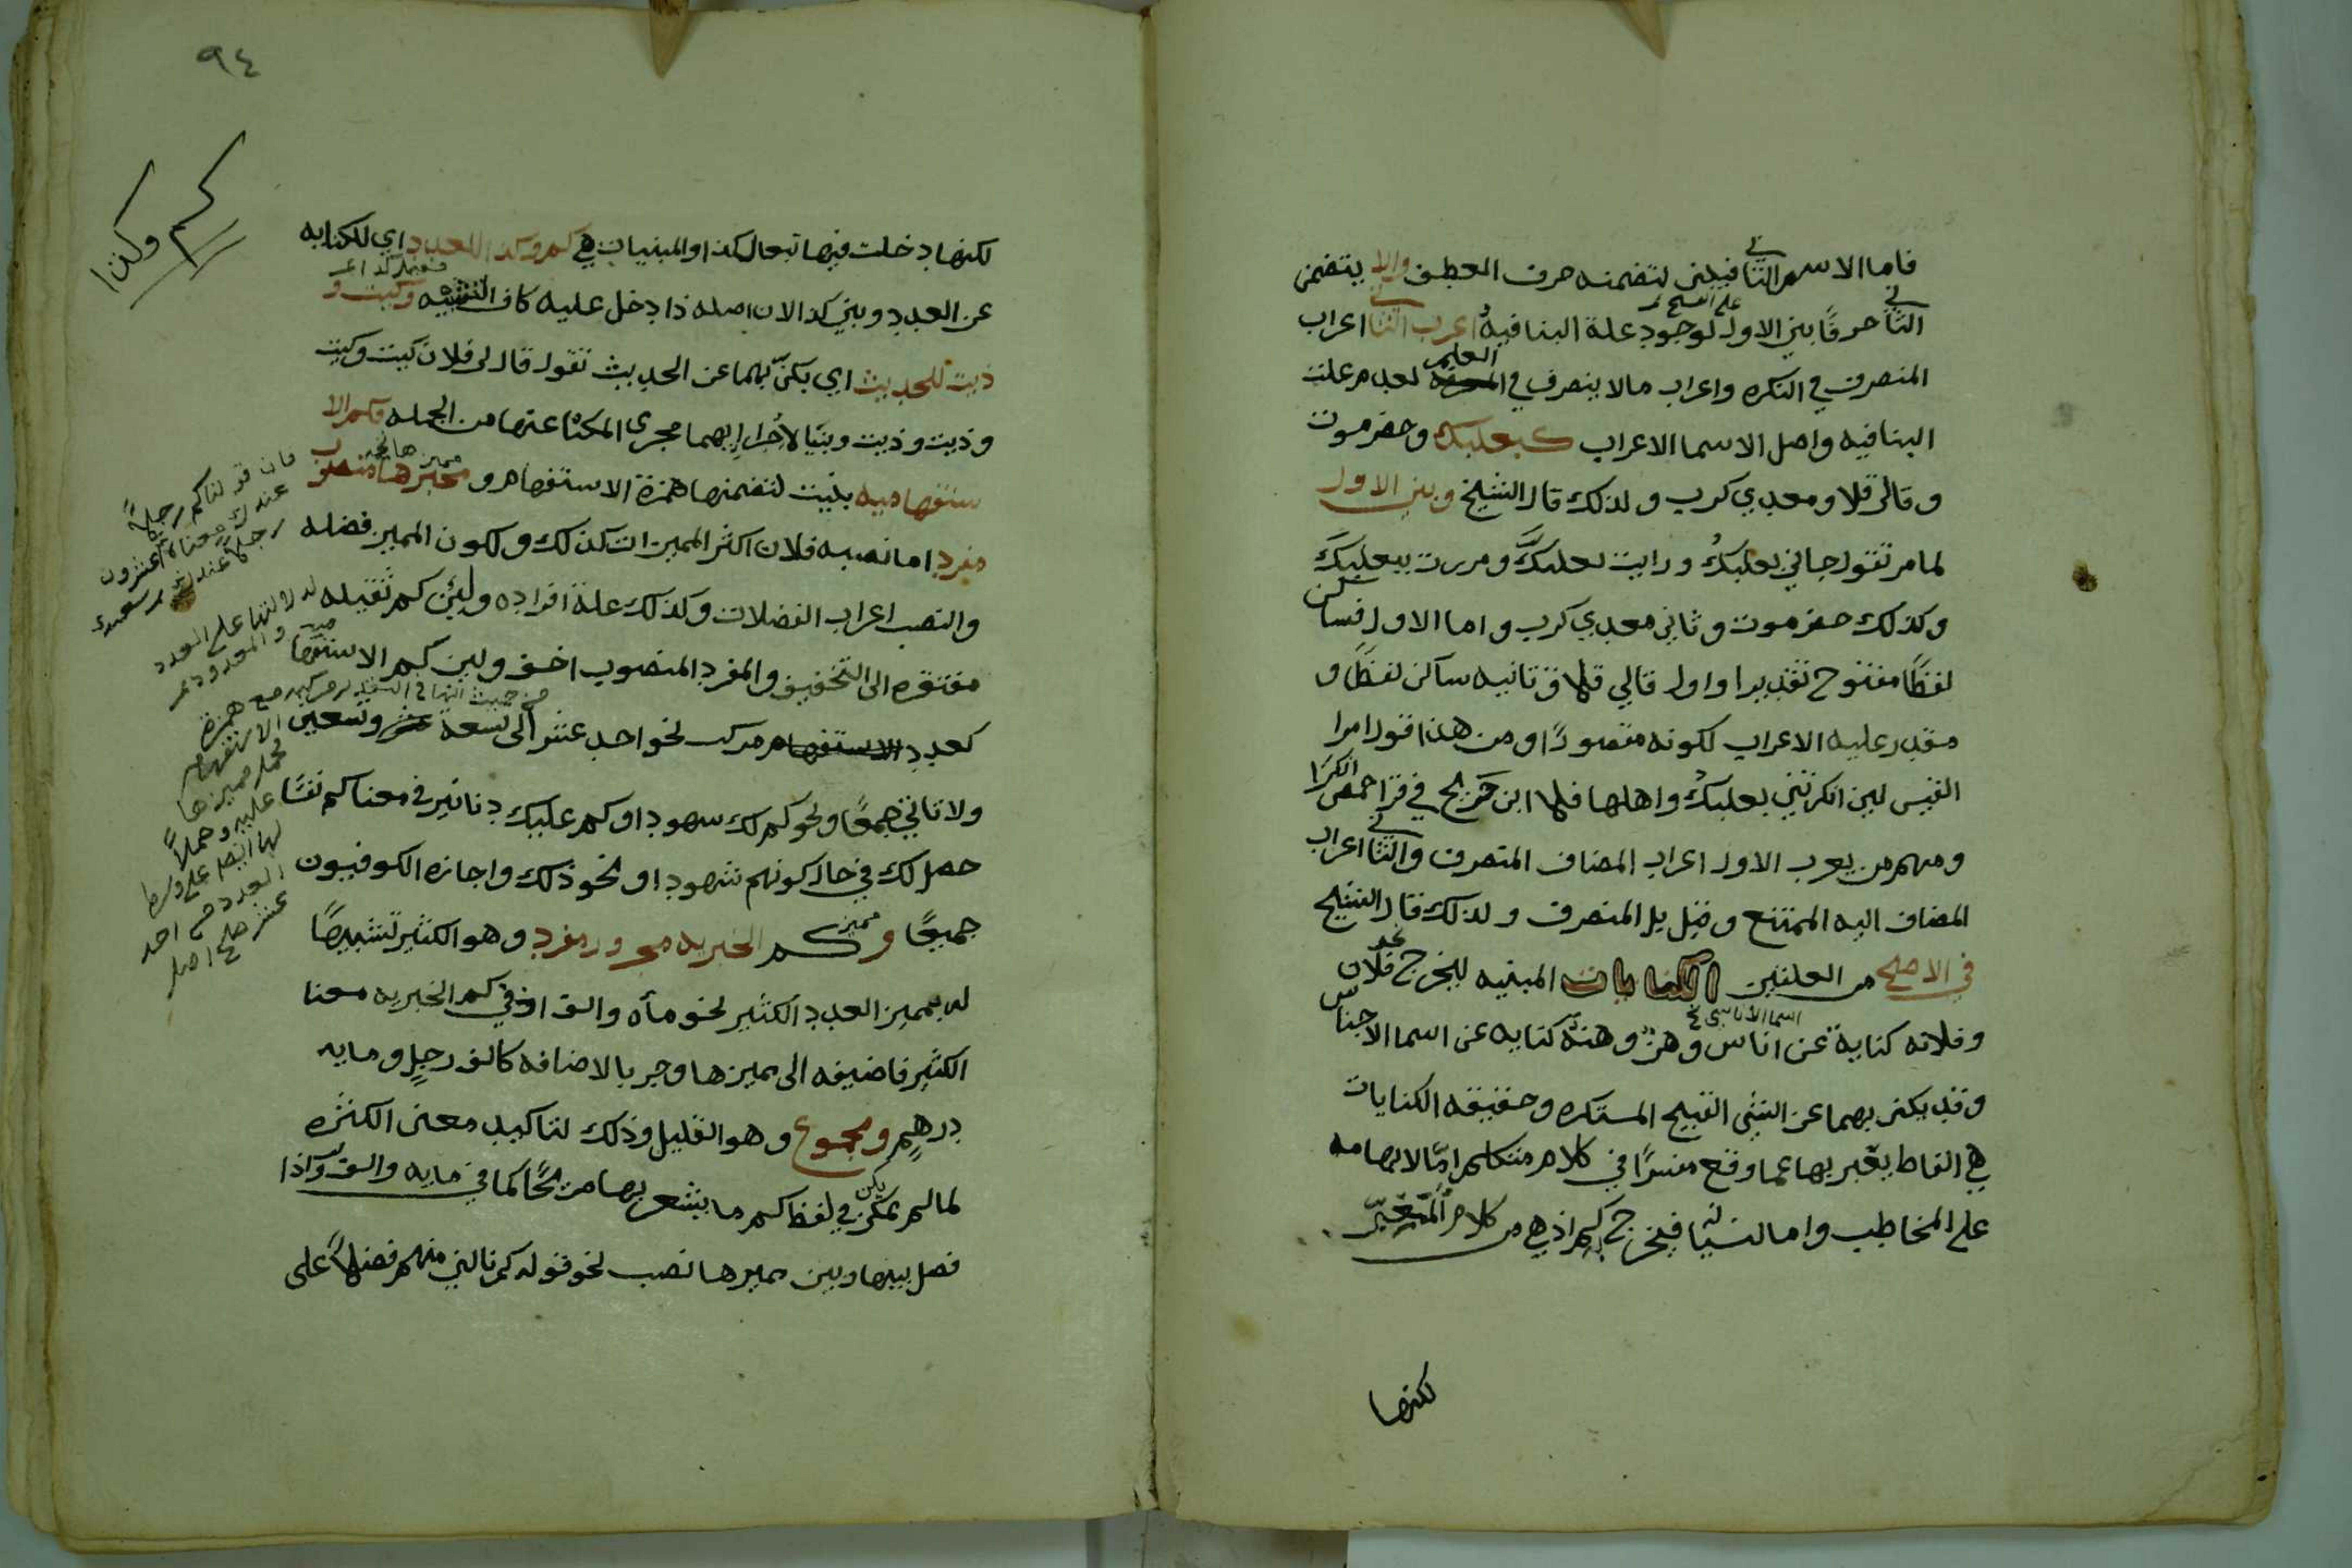 فاما الاسم الثاني فيبنى لتضمنه حرف العطف والا يتضمن
الثاني حرفًا بني الاول على الفتح لوجود علة البنا فيه اعرب الثاني اعراب
المنصرف في النكره واعراب مالا ينصرف في العلم لعدم علت
البنا فيه واصل الاسما الاعراب كبعلبك وحضرموت
وقالى قلا ومعدي كرب ولذلك قال الشيخ وبني الاول
لما مر تقول جاني بعلبكُ ورايت بعلبكَّ ومررت ببعلبكَ
وكذلك حضرموت وثاني معدي كرب واما الاول فساكن
لفظًا مفتوح تقديرا واول قالي قلا وثانيه ساكن لفظًا و
مقدر عليه الاعراب لكونه مقصورًا ومن هذا قول امرا
القيس لين انكرتني بعلبكُ واهلها فلا ابن جريج في قرا حمص انكرا
ومنهم من يعرب الاول اعراب المضاف المنصرف والثاني اعراب
المضاف اليه الممتنع وقيل بل المنصرف ولذلك قال الشيخ
في الاصح من العلتين الكنايات المبنيه ليخرج نحو فلان
وفلانه كناية عن اناس وهنٌ وهنة كنايه عن اسما الاجناس
اسما الاناسي
وقد يكنى بهما عن الشي القبيح المستكره وحقيقه الكنايات
هي الفاظ يعبر بها عما وقع مفسرًا في كلام متكلم امّا لابهامه
على المخاطب واما لنسيانه فيخرج كم اذ هي من كلام المتعبّر
لكنها
٩٤
كم وكذا
لكنها دخلت فيها تبعا لكذا والمبنيات هي كم وكذا للعدد اي للكنايه
عن العدد وبني كذا لان اصله ذا دخل عليه كاف التشبيه وكيت و
ذيت للحديث اي يكنّى بهما عن الحديث تقول قال لي فلان كيت وكيت
وذيت وذيت وبنيا لاجرايهما مجرى المكنا عنها من الجمله فكم الا
ستفهاميه بنيت لتضمنها همزة الاستفهام و مميزها منصوب
مفرد اما نصبه فلان اكثر المميزات كذلك ولكون المميز فضله
والنصب اعراب الفضلات وكذلك علة افراده ولين كم ثقيله
مفتقره الى التخفيف والمفرد المنصوب اخف ولين كم الاستفها
كعدد مركب نحو احد عشر الى تسعة وتسعين
ولا تاتي جمعًا ونحو كم لك شهودا وكم عليك دنانير في معنا كم نفسًا
حصل لك في حال كونهم شهودا ونحو ذلك واجازه الكوفيون
جميعًا ومميز كم الخبريه مجرور مفرد وهو الكثير تشبيهًا
له بمميز العدد الكثير نحو مأه والف اذ في كم الخبريه معنا
الكثير فاضيفه الى مميزها وجر بالاضافه كالف رجلٍ ومايه
درهمٍ ومجموع وهو القليل وذلك لتاكيد معنى الكثره
لما لم يكن في لفظ كم ما يشعر بها صريحًا كما في مايه والف واذا
فصل بينها وبين مميزها نصب نحو قوله كم نالني منهم فضلاً على
فان قولنا كم رجلاً
عندك معناه اعشرون
رجلاً عندك
لدلالتها على العدد
والمعدود
من حيث انها في التقدير مركبه مع همزة
الاستفهام
فحمل مميزها
عليه وحملاً
لها ايضًا على وسط
العدد من احد
عشر